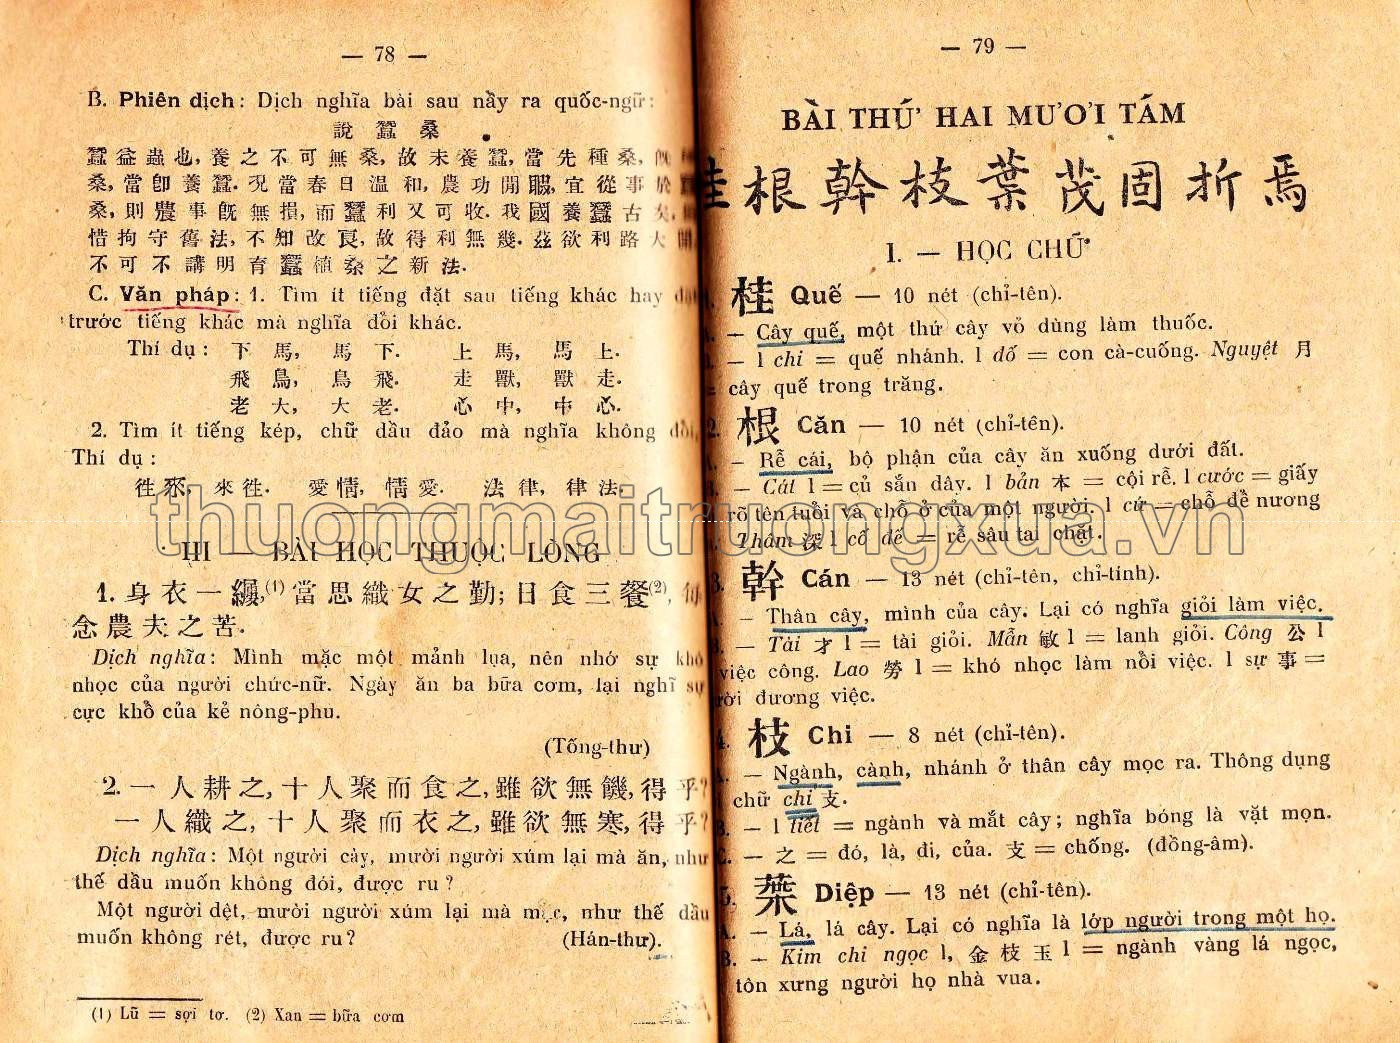 — 78 —
B. Phiên dịch : Dịch nghĩa bài sau nầy ra quốc-ngữ :
說 蠶 桑
蠶 益 蟲 也, 養 之 不 可 無 桑, 故 未 養 蠶, 當 先 種 桑,
桑, 當 卽 養 蠶. 況 當 春 日 溫 和, 農 功 閒 暇, 宜 從 事 於
桑, 則 農 事 旣 無 損, 而 蠶 利 又 可 收. 我 國 養 蠶 古 矣,
惜 拘 守 舊 法, 不 知 改 良, 故 得 利 無 幾. 茲 欲 利 路 大 開,
不 可 不 講 明 育 蠶 植 桑 之 新 法.
C. Văn pháp : 1. Tìm ít tiếng đặt sau tiếng khác hay
trước tiếng khác mà nghĩa đổi khác.
Thí dụ : 下 馬, 馬 下. 上 馬, 馬 上.
飛 鳥, 鳥 飛. 走 獸, 獸 走.
老 大, 大 老. 心 中, 中 心.
2. Tìm ít tiếng kép, chữ dầu đảo mà nghĩa không đổi,
Thí dụ :
徃 來, 來 徃. 愛 情, 情 愛. 法 律, 律 法.
III — BÀI HỌC THUỘC LÒNG
1. 身 衣 一 縷,(1) 當 思 織 女 之 勤; 日 食 三 餐(2), 每
念 農 夫 之 苦.
Dịch nghĩa : Mình mặc một mảnh lụa, nên nhớ sự khó
nhọc của người chức-nữ. Ngày ăn ba bữa cơm, lại nghĩ sự
cực khổ của kẻ nông-phu.
(Tống-thư)
2. 一 人 耕 之, 十 人 聚 而 食 之, 雖 欲 無 饑, 得 乎?
一 人 織 之, 十 人 聚 而 衣 之, 雖 欲 無 寒, 得 乎?
Dịch nghĩa : Một người cày, mười người xúm lại mà ăn, như
thế dầu muốn không đói, được ru ?
Một người dệt, mười người xúm lại mà mặc, như thế dầu
muốn không rét, được ru ? (Hán-thư).
(1) Lũ = sợi tơ. (2) Xan = bữa cơm
— 79 —
BÀI THỨ HAI MƯƠI TÁM
桂 根 幹 枝 葉 茂 固 折 焉
I. — HỌC CHỮ
桂 Quế — 10 nét (chỉ-tên).
— Cây quế, một thứ cây vỏ dùng làm thuốc.
— l chi = quế nhánh. l đố = con cà-cuống. Nguyệt 月
= cây quế trong trăng.
2. 根 Căn — 10 nét (chỉ-tên).
— Rễ cái, bộ phận của cây ăn xuống dưới đất.
— Cát l = củ sắn dây. l bản 本 = cội rễ. l cước = giấy
rõ tên tuổi và chỗ ở của một người. l cứ = chỗ để nương
Thâm 深 l cố đế = rễ sâu tai chặt.
3. 幹 Cán — 13 nét (chỉ-tên, chỉ-tính).
— Thân cây, mình của cây. Lại có nghĩa giỏi làm việc.
— Tài 才 l = tài giỏi. Mẫn 敏 l = lanh giỏi. Công 公 l
việc công. Lao 勞 l = khó nhọc làm nổi việc. l sự 事 =
người đương việc.
4. 枝 Chi — 8 nét (chỉ-tên).
A. — Ngành, cành, nhánh ở thân cây mọc ra. Thông dụng
chữ chi 支.
B. — l tiết = ngành và mắt cây ; nghĩa bóng là vặt mọn.
C. — 之 = đó, là, đi, của. 支 = chống. (đồng-âm).
5. 葉 Diệp — 13 nét (chỉ-tên).
A. — Lá, lá cây. Lại có nghĩa là lớp người trong một họ.
B. — Kim chi ngọc l, 金 枝 玉 l = ngành vàng lá ngọc,
tôn xưng người họ nhà vua.
thuongmaitruongxua.vn